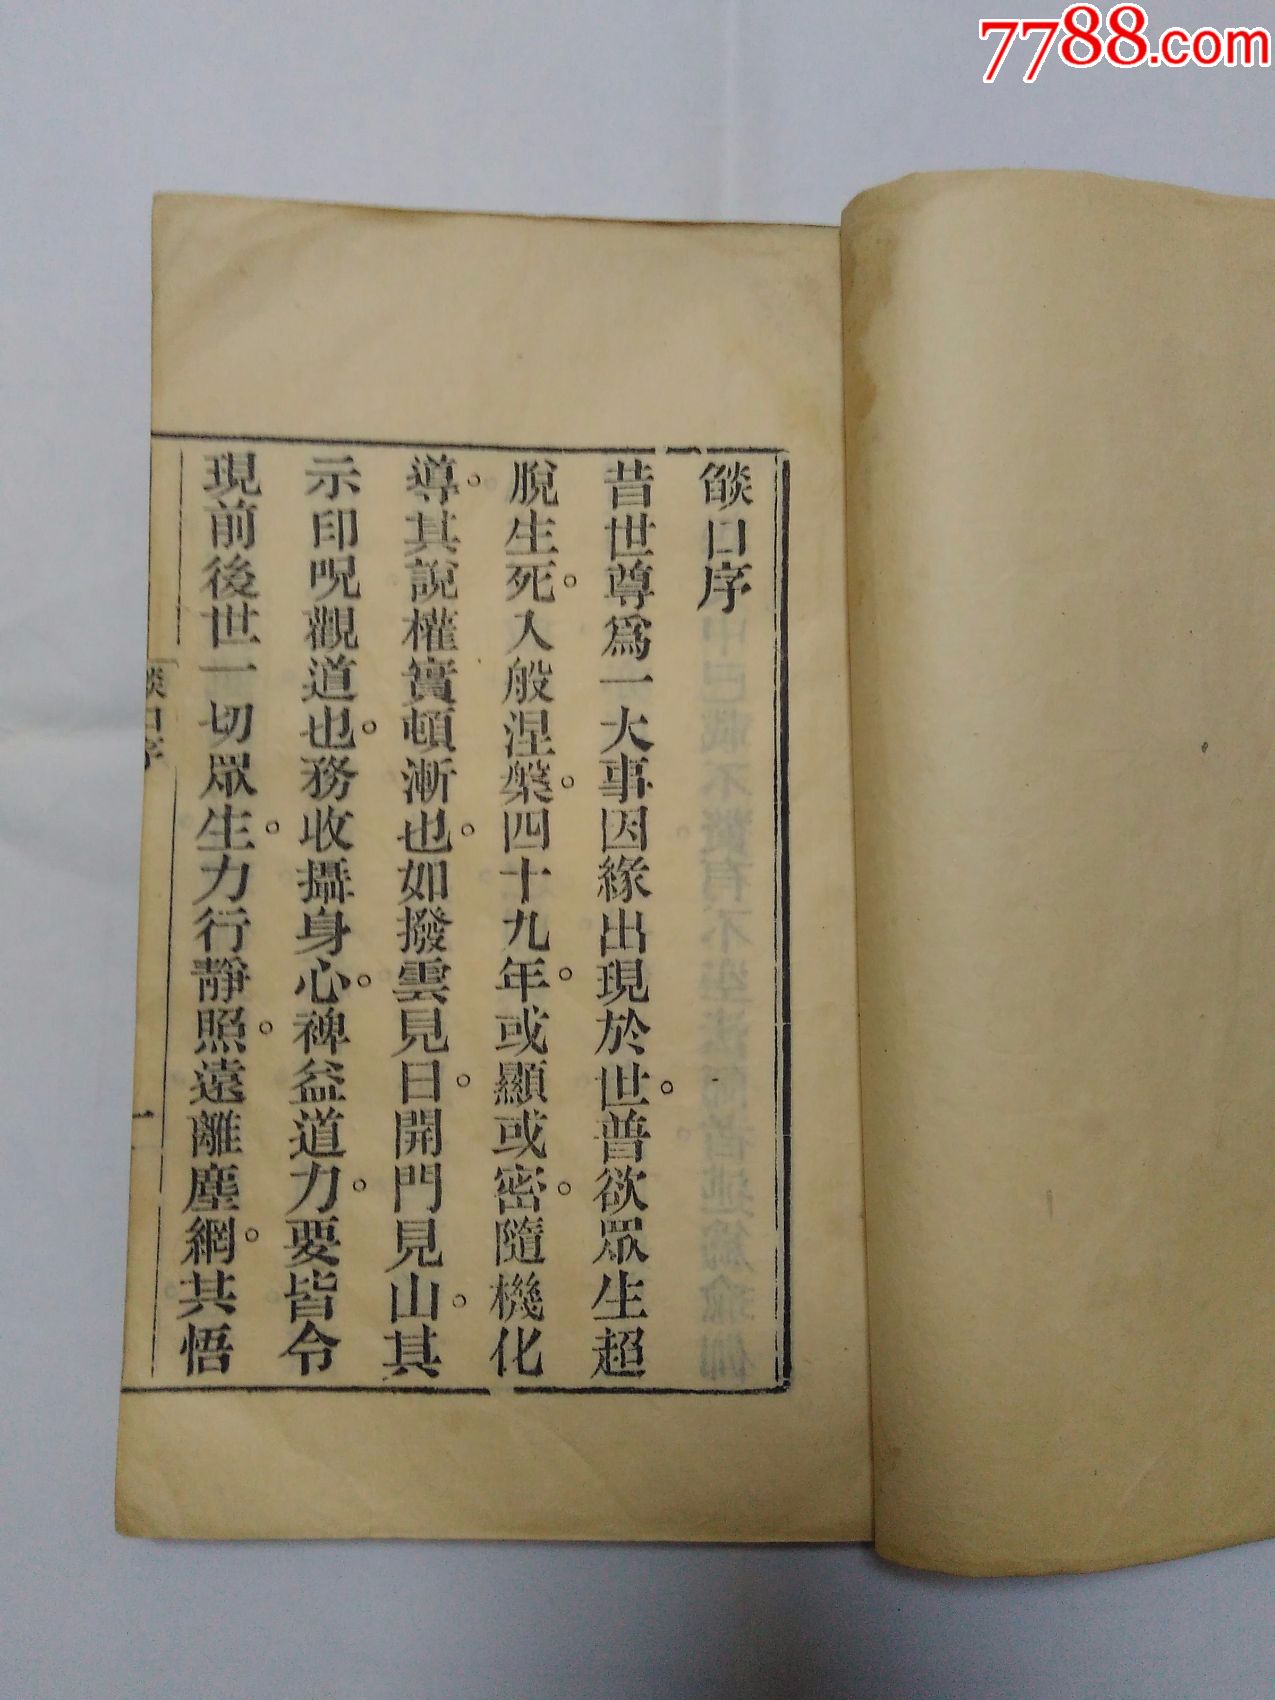 燄口序
昔世尊爲一大事因緣出現於世。普欲眾生超
脫生死。入般涅槃。四十九年。或顯或密。隨機化
導。其說權實頓漸也。如撥雲見日。開門見山。其
示印呪觀道也。務收攝身心。裨益道力。要皆令
現前後世一切眾生。力行靜照。遠離塵網。共悟
燄口序
一
7788.com